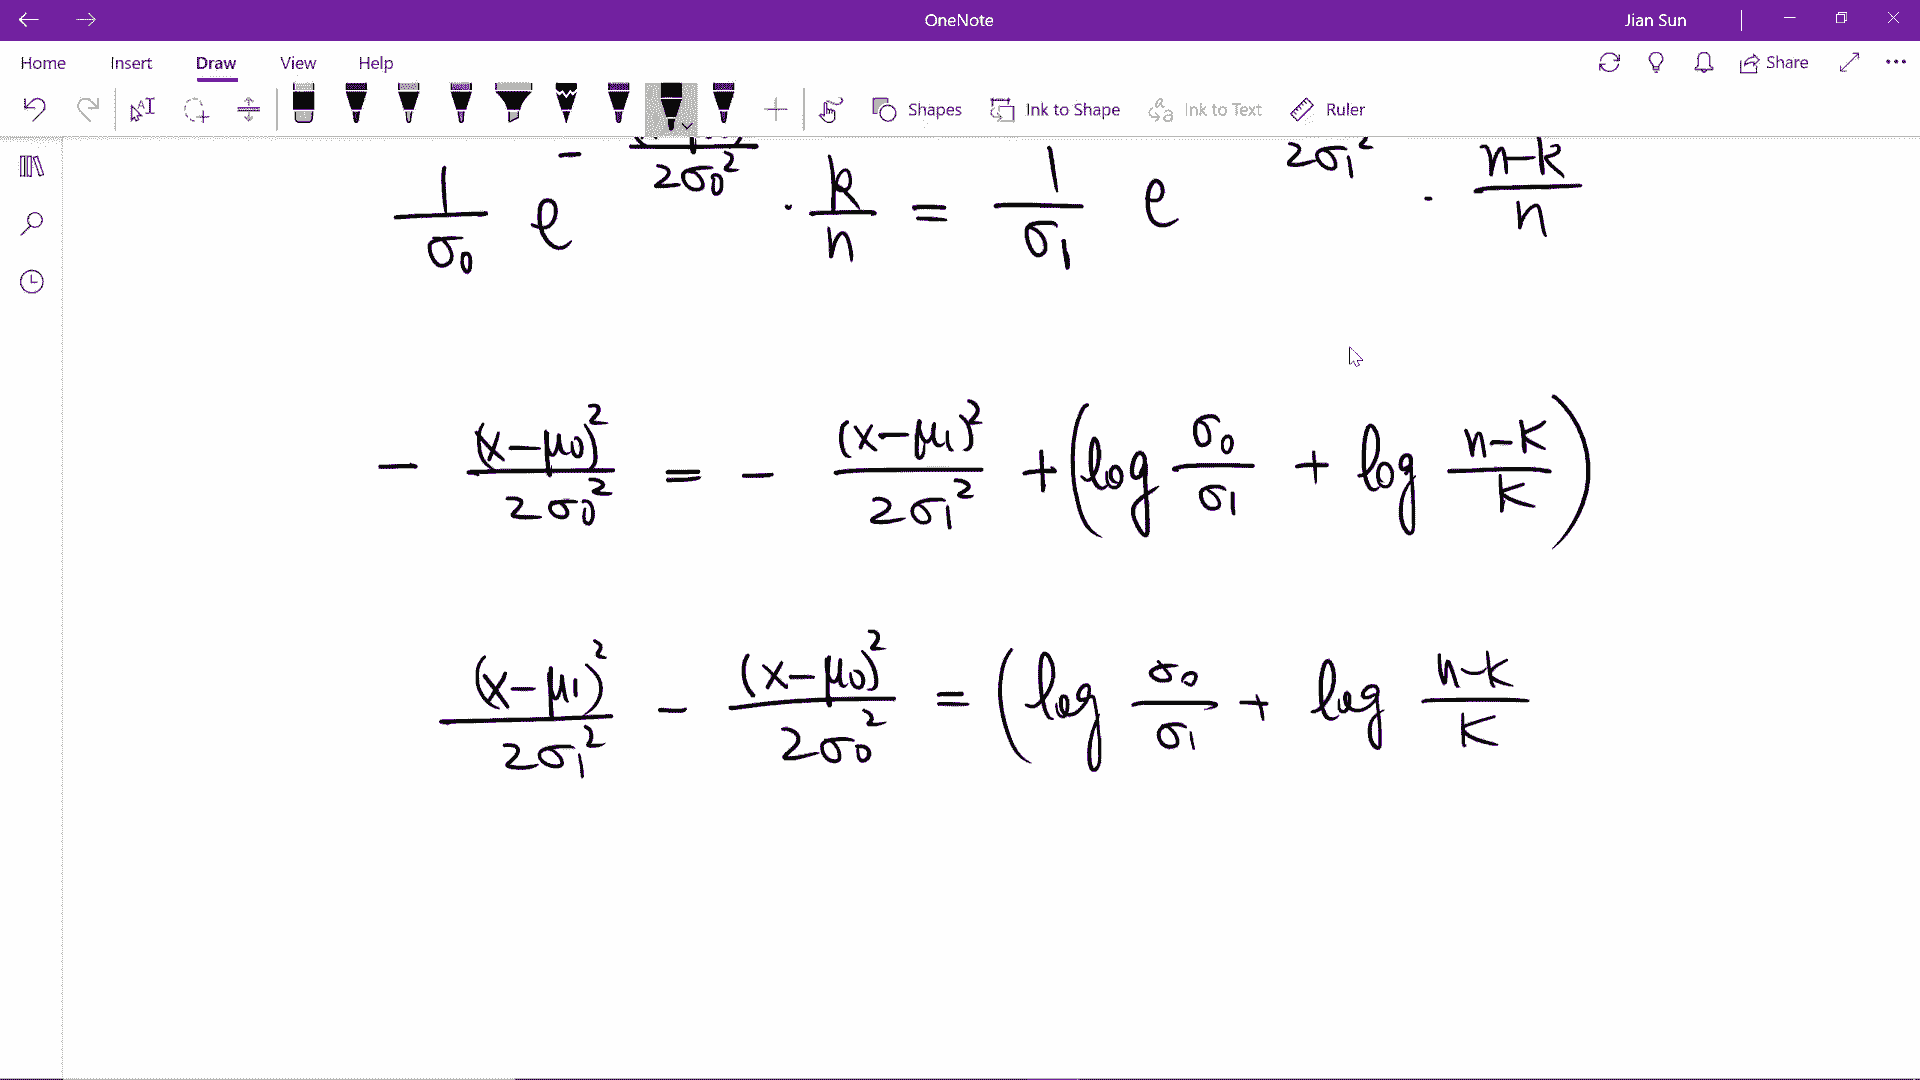 OneNote
Jian Sun
Home Insert Draw View Help
Share
Shapes Ink to Shape Ink to Text Ruler
1/σ₀ e^{- /2σ₀²} · k/n = 1/σ₁ e^{ /2σ₁²} · (n-k)/n
- (x-μ₀)²/2σ₀² = - (x-μ₁)²/2σ₁² + (log σ₀/σ₁ + log (n-k)/k)
(x-μ₁)²/2σ₁² - (x-μ₀)²/2σ₀² = (log σ₀/σ₁ + log (n-k)/k